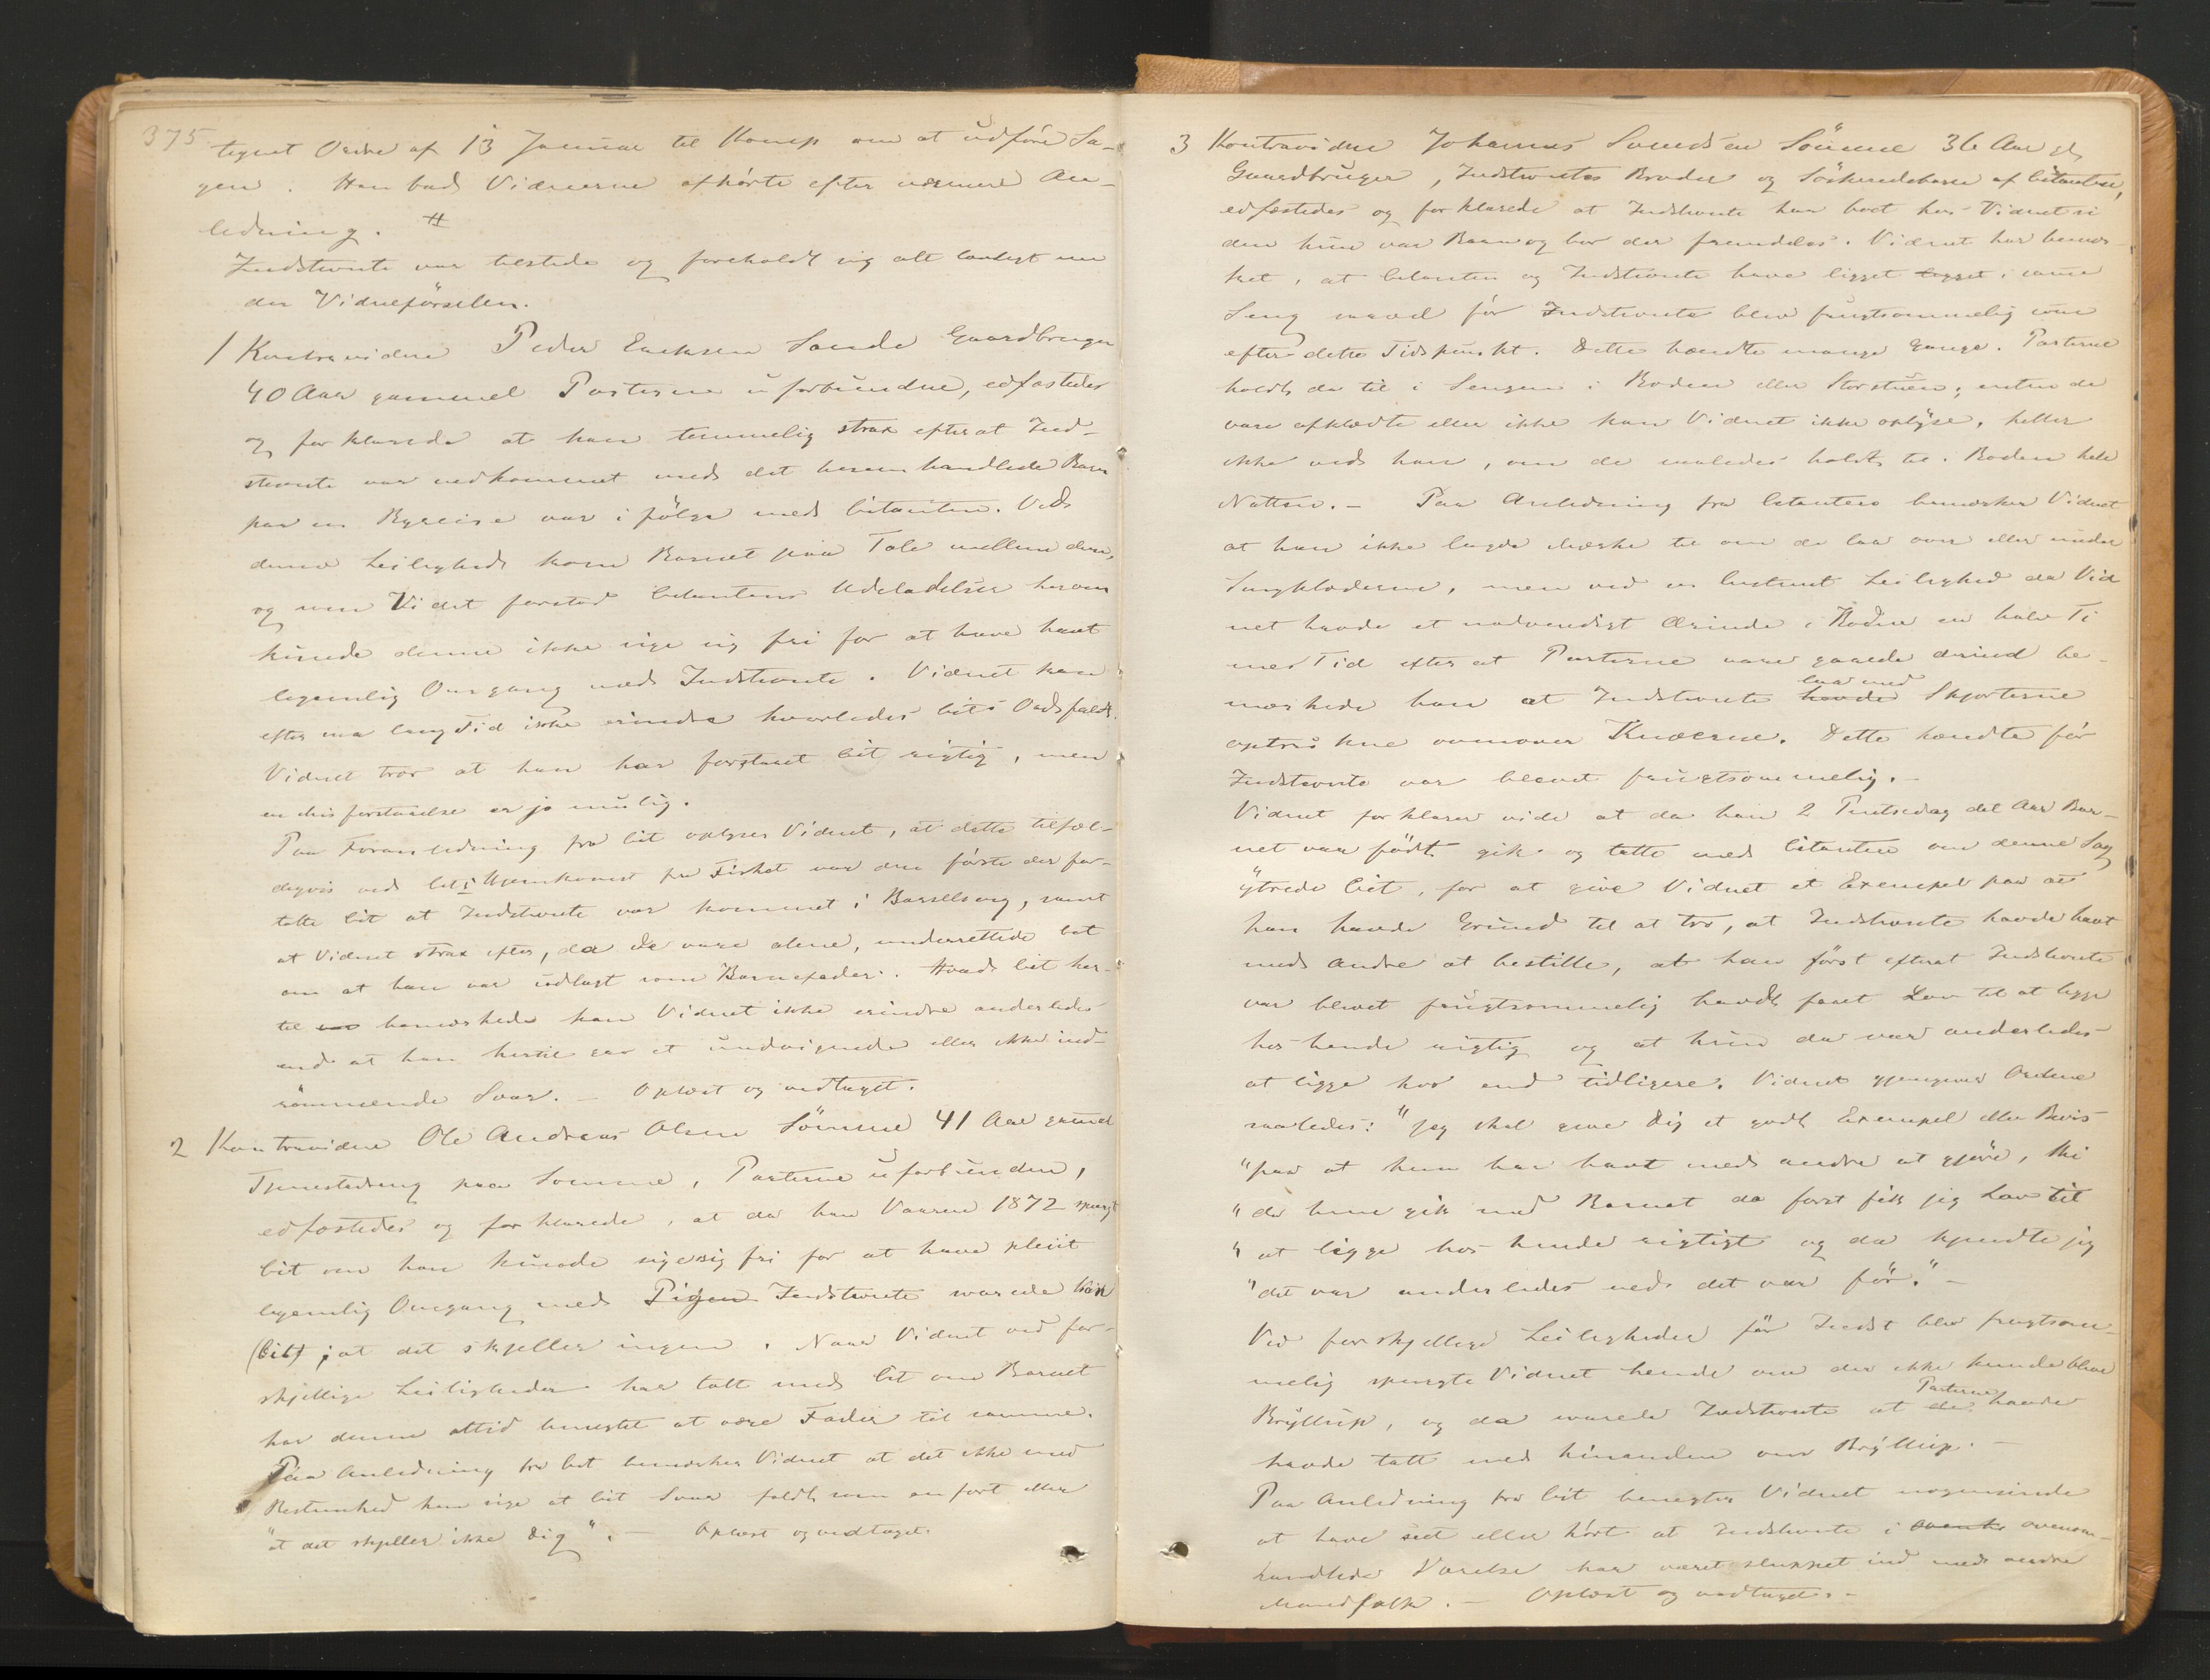 375
tegnet Ordre af 13 Januar til Kamp om at udføre Sa-
gen. Han bad Vidnerne afhørte efter nærmere An-
ledning. #
Indstevnte var tilstede og foreholdt sig alt lovligt un
der Vidneførselen.
1 Kontravidne Peder Eriksen Sande Gaardbruger
40 Aar gammel Parterne uforbunden, edfæstedes
og forklarede at han temmelig strax efterat Ind-
stevnte var nedkommet med det heromhandlede Barn
paa en Byreise var i følge med Citanten. Ved
denne Leilighed kom Barnet paa Tale mellem dem,
og som Vidnet forstod Citantens Udeladelser herom
kunde denne ikke sige sig fri for at have havt
legemlig Omgang med Indstevnte. Vidnet kan
efter saa lang Tid ikke erindre hvorledes Cits Ord faldt.
Vidnet tror at han har forstaaet Cit rigtig, men
en Misforstaaelse er jo mulig.
Paa Foranledning fra Cit oplyser Vidnet, at dette tilfæl-
digvis ved Cits Hjemkomst fra Fisket var den første der for-
talte Cit at Indstevnte var kommet i Barselseng, samt
at Vidnet strax efter, da de vare alene, underrettede Cit
om at han var udlagt som Barnefader. Hvad Cit her-
til bemærkede kan Vidnet ikke erindre anderledes
end at han hertil gav et undvigende eller ikke ind-
rømmende Svar. – Oplæst og vedtaget.
2 Kontravidne Ole Andreas Olsen Sømme 41 Aar gammel
Tjenestedreng paa Sømme, Parterne uforbunden,
edfæstedes og forklarede, at da han Vaaren 1872 spurgt
Cit om han kunde sige sig fri for at have pleiet
legemlig Omgang med Pigen Indstevnte svarede han
(Cit) ; at det skjeller ingen. Naar Vidnet ved for-
skjellige Leiligheder har talt med Cit om Barnet
har denne altid benegtet at være Fader til samme.
Paa Anledning fra Cit bemærker Vidnet at det ikke med
Bestemthed kan sige at Cit Svar faldt som anført eller
"at det skjeller ikke Dig". – Oplæst og vedtaget.
3 Kontravidne Johannes Sømme 36 Aar gl
Gaardbruger, Indstevntes Broder og Søskendebarn af Citanten,
edfæstedes og forklarede at Indstevnte har boet hos Vidnet si
den hun var Barn og bor der fremdeles. Vidnet har bemær
ket, at Citanten og Indstevnte have ligget ligget i samme
Seng saavel før Indstevnte blev frugtsommelig som
efter dette Tidspunkt. Dette hændte mange Gange. Parterne
holdt da til i Sengen i Boden eller Storstuen; enten de
vare afklædte eller ikke kan Vidnet ikke oplyse, heller
ikke ved han, om de saaledes holdt til i Boden hele
Natten. – Paa Anledning fra Citanten bemærker Vidnet
at han ikke lagde Mærke til om de laa over eller under
Sengklæderne, men ved en bestemt Leilighed da Vid
net havde et nødvendigt Ærinde i Boden en halv Ti
mes Tid efter at Parterne vare gaaede derind be-
mærkede han at Indstevnte havde laa med Skjørterne
optrukne ovenover Knæerne. Dette hændte før
Indstevnte var blevet frugtsommelig. –
Vidnet forklarer vide at da han 2 Pintsedag det Aar Bar-
net var født gik og talte med Citanten om denne Sag
ytrede Cit, for at give Vidnet et Exempel paa at
han havde Grund til at tro, at Indstevnte havde havt
med andre at bestille, at han først efterat Indstevnte
var blevet frugtsommelig havde faaet Lov til at ligge
hos hende rigtig og at hun da var anderledes
at ligge hos end tidligere. Vidnet gjengiver Ordene
saaledes: "jeg skal give Dig et godt Exempel eller Bevis
"paa at hun har havt med andre at gjøre, thi
"da hun gik med Barnet da først fik jeg Lov til
"at ligge hos hende rigtigt og da kjendte jeg
"det var anderledes end det var før." –
Ved forskjellige Leiligheder før Indst blev frugtsom-
melig spurgte Vidnet hende om der ikke kunde blive
Bryllup, og da svarede Indstevnte at de Parterne havde
havde talt med hinanden om Bryllup. –
Paa Anledning fra Cit benegter Vidnet nogensinde
at have seet eller hørt at Indstevnte i ovenom-
handlede Værelse har været slukket ind med andre
Mandfolk. – Oplæst og vedtaget. –